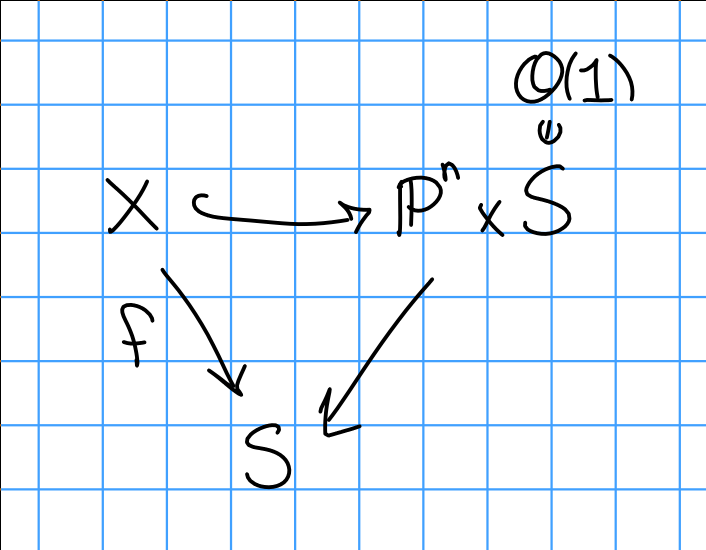 O(1)
X ↪ ℙⁿ × S
f
S